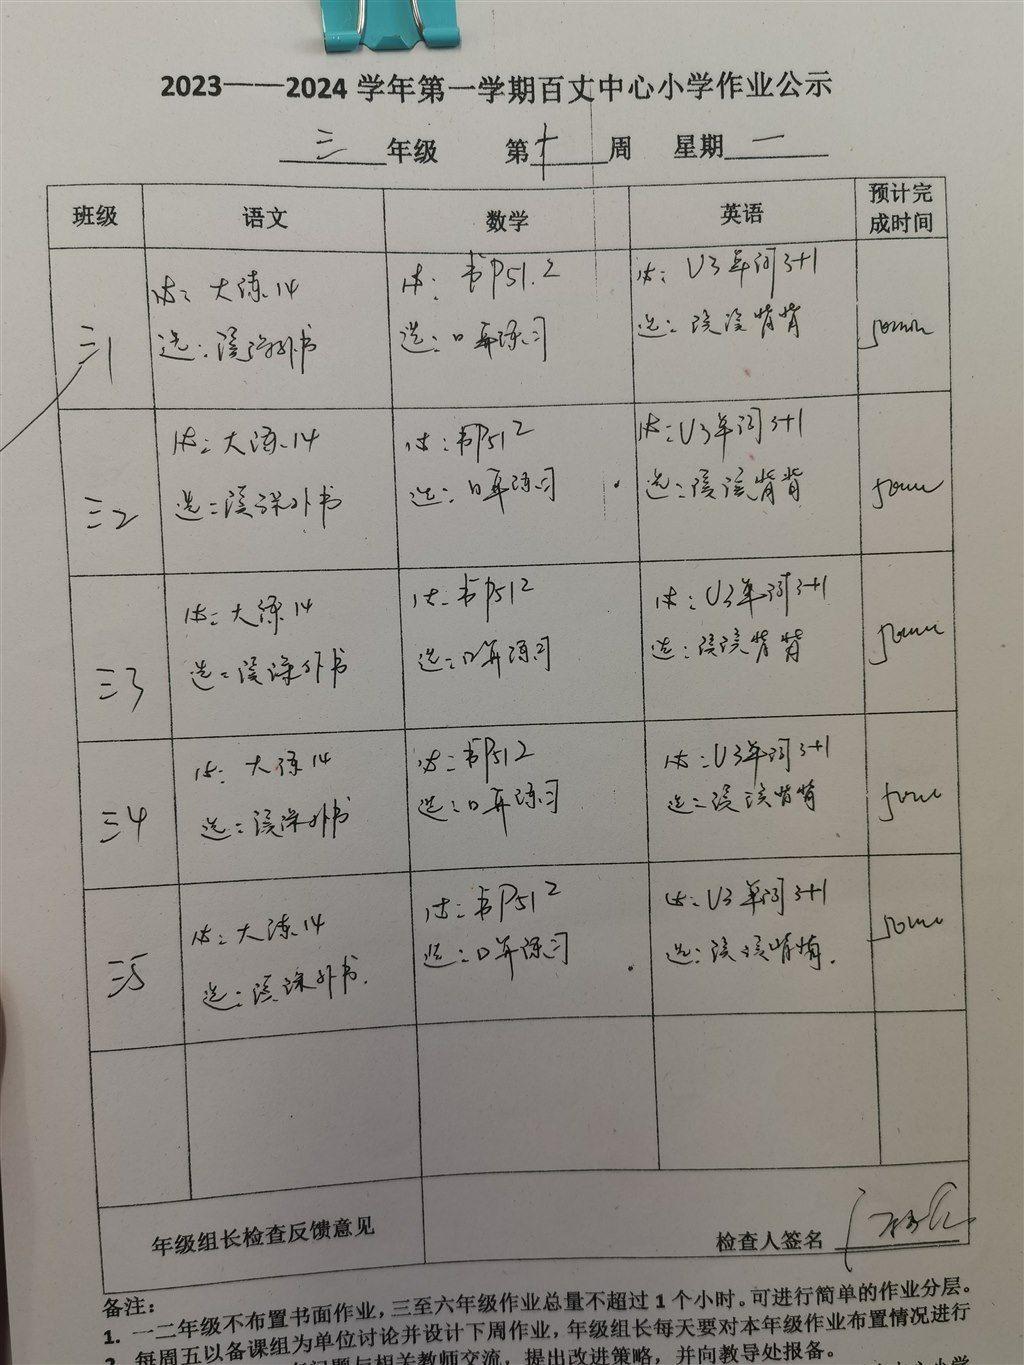 2023——2024 学年第一学期百丈中心小学作业公示
三 年级 第 十 周 星期 一
班级 语文 数学 英语 预计完成时间
三1
必: 大练14
选: 读课外书
必: 书P51.2
选: 口算练习
必: U3单词3+1
选: 读读背背
50min
三2
必: 大练14
选: 读课外书
必: 书P51 2
选: 口算练习
必: U3单词3+1
选: 读读背背
50min
三3
必: 大练14
选: 读课外书
必: 书P51 2
选: 口算练习
必: U3单词3+1
选: 读读背背
50min
三4
必: 大练14
选: 读课外书
必: 书P51 2
选: 口算练习
必: U3单词3+1
选: 读读背背
50min
三5
必: 大练14
选: 读课外书.
必: 书P51 2
选: 口算练习
必: U3单词3+1
选: 读读背背.
50min
年级组长检查反馈意见
检查人签名
备注:
1. 一二年级不布置书面作业，三至六年级作业总量不超过 1 个小时。可进行简单的作业分层。
2. 每周五以备课组为单位讨论并设计下周作业，年级组长每天要对本年级作业布置情况进行
问题与相关教师交流，提出改进策略，并向教导处报备。